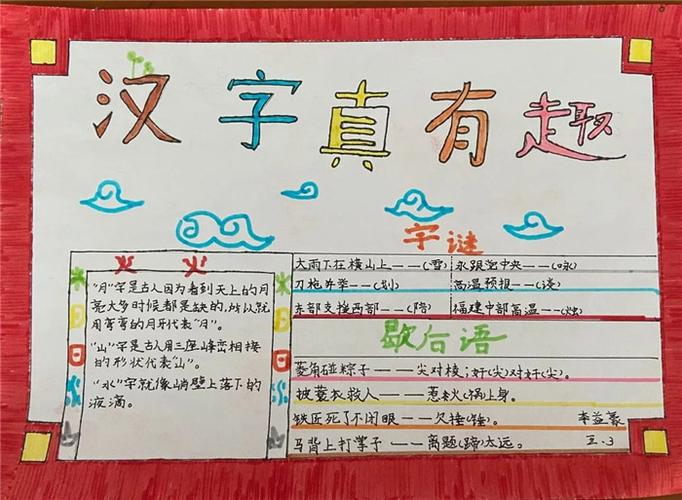 汉字真有趣
字谜
大雨下在横山上——(雪) 永跟党中央——(咏)
刀枪并举——(划) 高温预报——(谈)
东部支援西部——(陪) 福建中部高温——(烛)
火 火
"月"字是古人因为看到天上的月
亮大多时候都是缺的,所以就
用弯弯的月牙代表"月"。
"山"字是古人用三座峰峦相接
的形状代表"山"。
"水"字就像峭壁上落下的
液滴。
日
日
歇后语
菱角碰粽子——尖对棱;奸(尖)对奸(尖)。
披蓑衣救人——惹火(祸)上身。
铁匠死了不闭眼——欠捶(锤)。 李益豪
马背上打掌子——离题(蹄)太远。 五.3